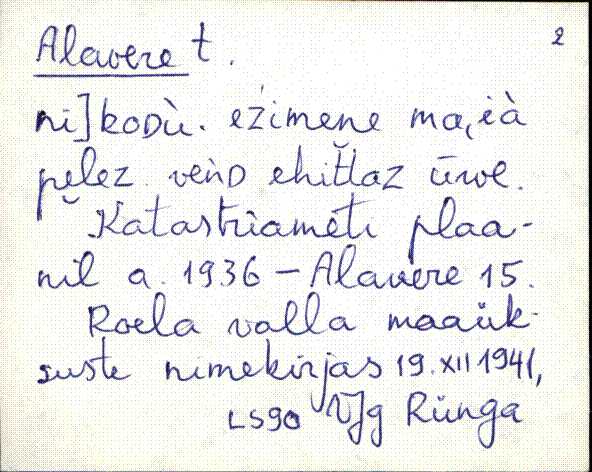 Alavere t. 2
ni] koDù. ežimene ma,ià
pèlez vènD ehittaz ūwe.
Katastriameti plaa-
nil a. 1936 – Alavere 15.
Roela valla maaük-
suste nimekirjas 19.XII 1941,
LS90 VJg Rünga